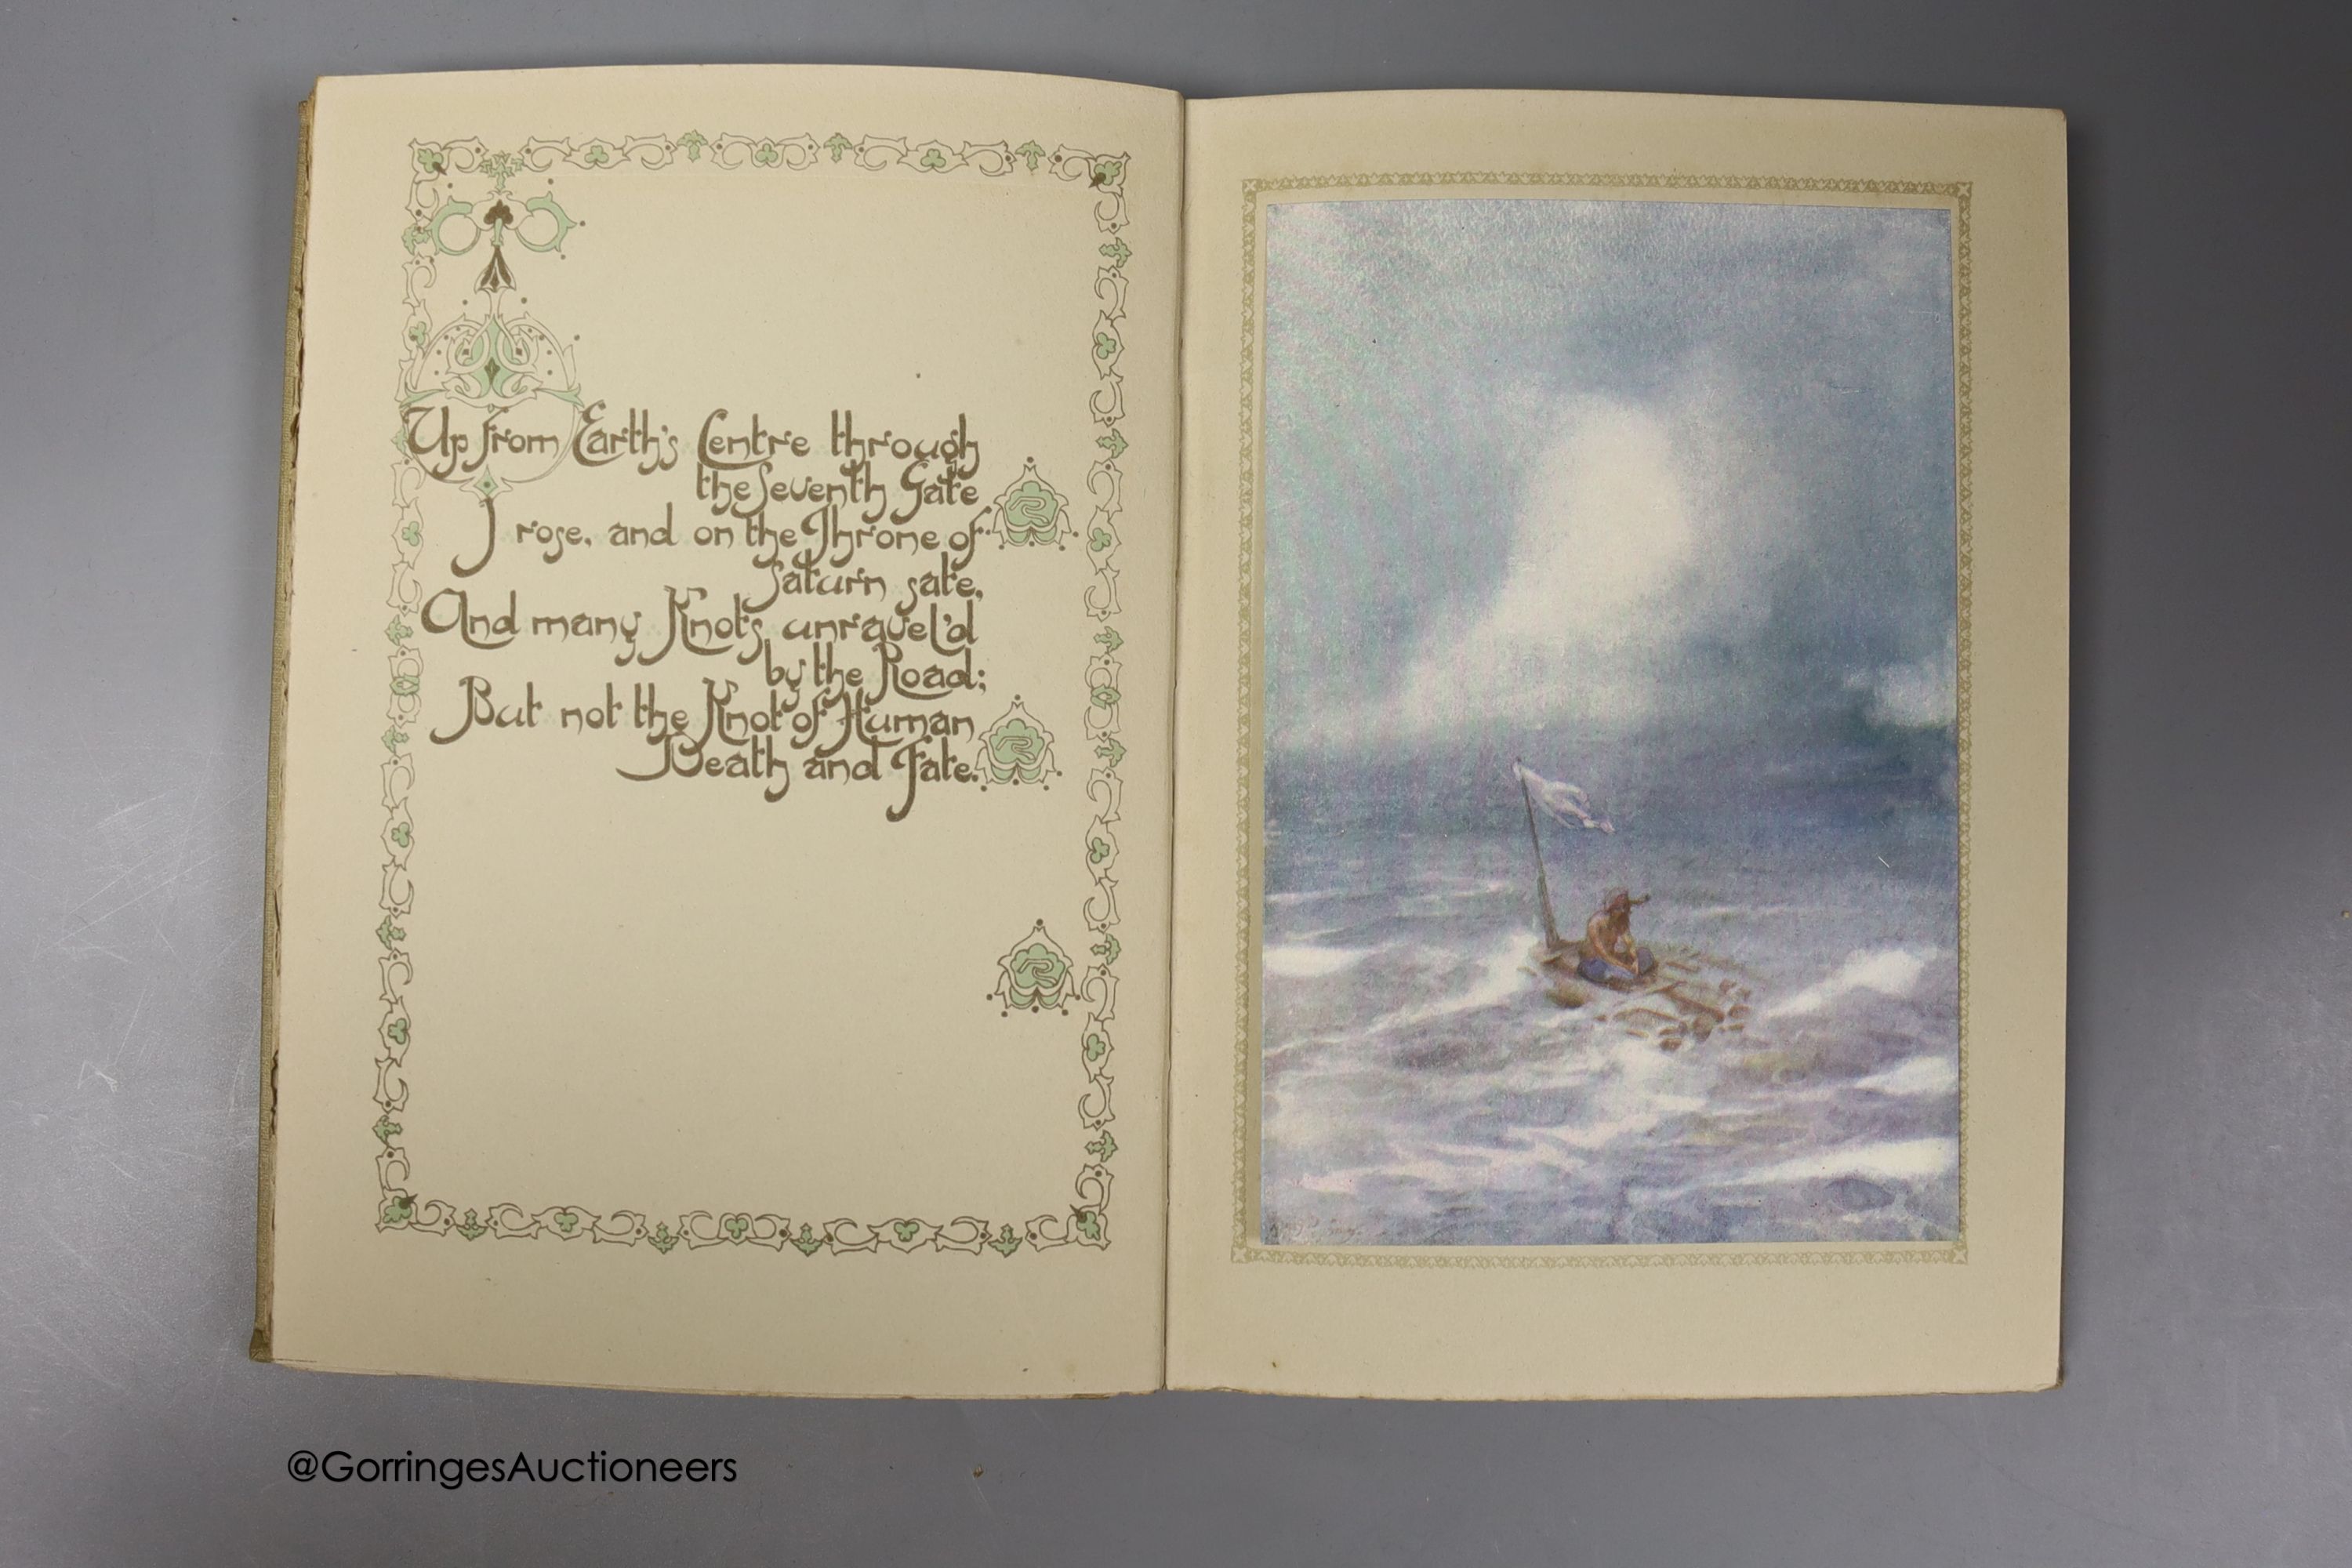 Up from Earth's Centre through
the Seventh Gate
I rose, and on the Throne of
Saturn sate,
And many Knots unravel'd
by the Road;
But not the Knot of Human
Death and Fate.
@GorringesAuctioneers